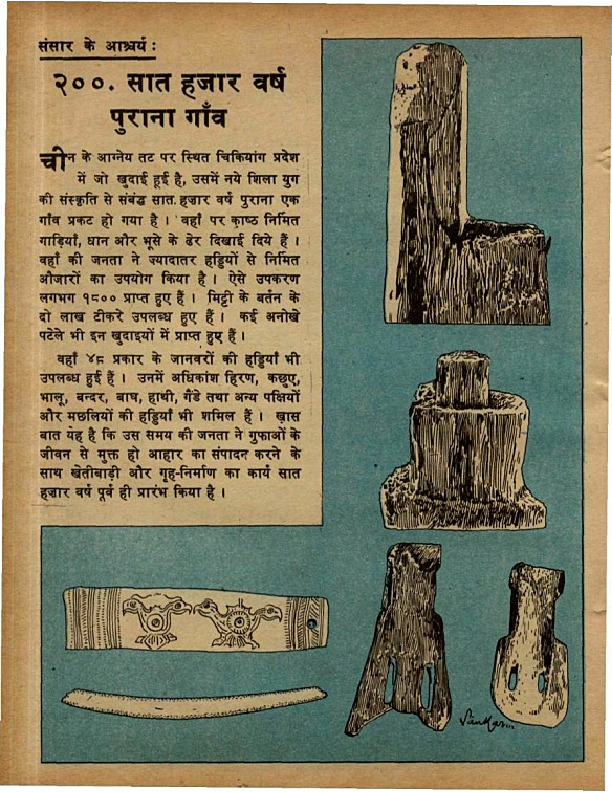 संसार के आश्चर्य :
२००. सात हजार वर्ष
पुराना गाँव
चीन के आग्नेय तट पर स्थित चिकियांग प्रदेश
में जो खुदाई हुई है, उसमें नये शिला युग
की संस्कृति से संबंद्ध सात हजार वर्ष पुराना एक
गाँव प्रकट हो गया है । वहाँ पर काष्ठ निर्मित
गाड़ियाँ, धान और भूसे के ढेर दिखाई दिये हैं ।
वहाँ की जनता ने ज्यादातर हड्डियों से निर्मित
औजारों का उपयोग किया है । ऐसे उपकरण
लगभग १८०० प्राप्त हुए हैं । मिट्टी के बर्तन के
दो लाख टीकरे उपलब्ध हुए हैं । कई अनोखे
पटेले भी इन खुदाइयों में प्राप्त हुए हैं ।
वहाँ ४८ प्रकार के जानवरों की हड्डियाँ भी
उपलब्ध हुई हैं । उनमें अधिकांश हिरण, कछुए,
भालू, बन्दर, बाघ, हाथी, गैंडे तथा अन्य पक्षियों
और मछलियों की हड्डियाँ भी शमिल हैं । ख़ास
बात यह है कि उस समय की जनता ने गुफाओं के
जीवन से मुक्त हो आहार का संपादन करने के
साथ खेतीबाड़ी और गृह-निर्माण का कार्य सात
हज़ार वर्ष पूर्व ही प्रारंभ किया है ।
Sankar...